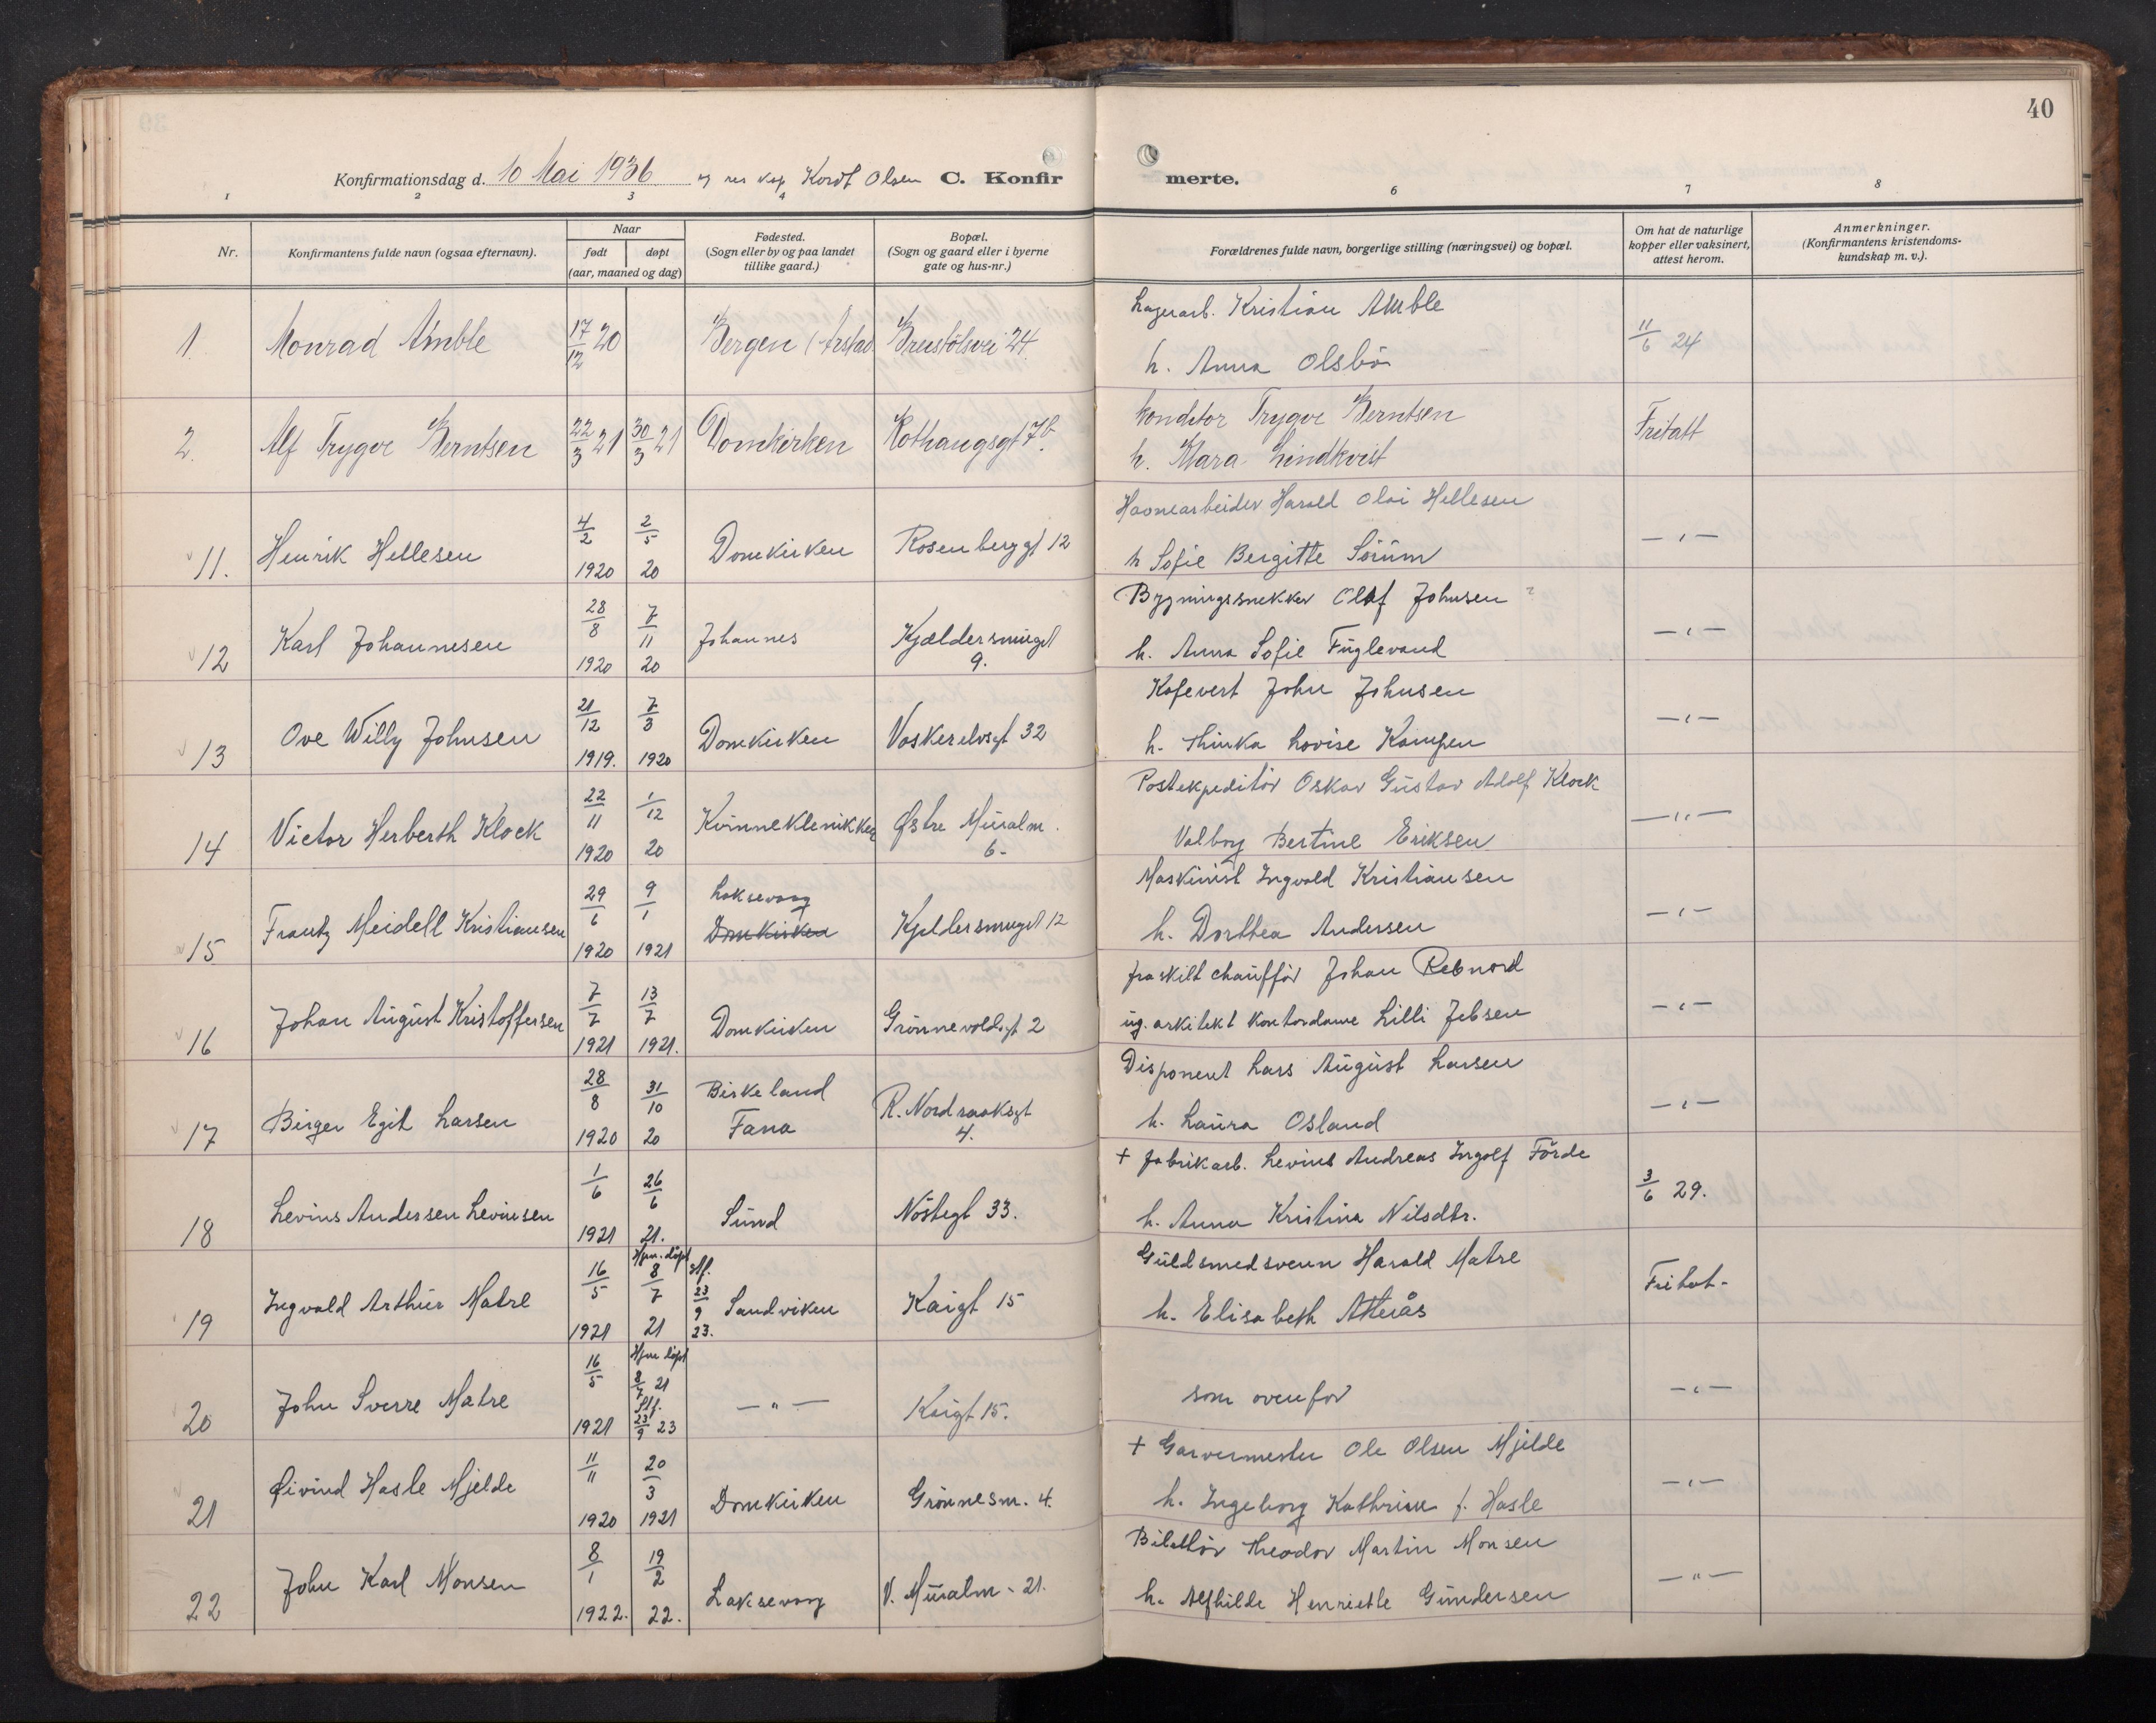 40
Konfirmationsdag d. 10 Mai 1936 Kordt Olsen C. Konfirmerte.
1 2 3 4 6 7 8
Nr. Konfirmantens fulde navn (ogsaa efternavn). Naar født døpt (aar, maaned og dag) Fødested. (Sogn eller by og paa landet tillike gaard.) Bopæl. (Sogn og gaard eller i byerne gate og hus-nr.) Forældrenes fulde navn, borgerlige stilling (næringsvei) og bopæl. Om hat de naturlige kopper eller vaksinert, attest herom. Anmerkninger. (Konfirmantens kristendomskundskap m. v.).
1. Monrad Amble 17/12 20 Bergen (Årstad Brustölsvei 24. Lagerarb. Kristian Amble
h. Anna Olsbö 11/6 24
2. Alf Trygve Berntsen 22/3 21 30/3 21 Domkirken Rothaugsgt 7b. Konditor Trygve Berntsen
h. Klara Lindkvist Fritatt
11. Henrik Hellesen 4/2 1920 2/5 20 Domkirken Rosenberggt 12 Havnearbeider Harald Olai Hellesen
h Sofie Bergitte Sörum — " —
12 Karl Johannesen 28/8 1920 7/11 20 Johannes Kjældersmuget 9. Bygningssnekker Olaf Johnsen ?
h. Anna Sofie Fuglevand — " —
13 Ove Willy Johnsen 21/12 1919. 7/3 1920 Domkirken Vaskerelvsgt 32 Kafevert John Johnsen
h. Thinka Lovise Kampen — " —
14 Victor Herberth Klock 22/11 1920 1/12 20 Kvinneklenikken Østre Muralm. 6- Postekpeditör Oskar Gustav Adolf Klock
Valborg Bertine Eriksen — " —
15 Frantz Meidell Kristiansen 29/6 1920 9/1 1921 Laksevaag Domkirken Kjeldersmuget 12 Maskinist Ingvald Kristiansen
h. Dorthea Andersen — " —
16 Johan August Kristoffersen 7/7 1921 13/7 1921. Domkirken Grönnevoldsgt 2 fraskilt chaufför Johan Rebnord
ug. arkitekt kontordame Lilli Jebsen — " —
17 Birger Egil Larsen 28/8 1920 31/10 20 Birkeland Fana R. Nordraaksgt 4. Disponent Lars August Larsen
h. Laura Osland — " —
18 Levins Andersen Levinsen 1/6 1921 26/6 21. Sund Nöstegt 33. + fabrikarb. Levins Andreas Ingolf Förde
h. Anna Kristina Nilsdtr. 3/6 29.
19 Ingvald Arthur Matre 16/5 1921 Hjm. döpt 8/7 21 Stf. 23/9 23. Sandviken Kaigt 15 Guldsmedsvenn Harald Matre
h. Elisabeth Atterås Fritat-
20 John Sverre Matre 16/5 1921 Hjm döpt 8/7 21 Stf. 23/9 23 — " — Kaigt 15. som ovenfor — " —
21 Øivind Hasle Mjelde 11/11 1920 20/3 1921 Domkirken Grönnesm. 4. + Garvermester Ole Olsen Mjelde
h. Ingeborg Kathrine f. Hasle — " —
22 John Karl Monsen 8/1 1922. 19/2 22. Laksevaag V. Muralm - 21. Billettör Theodor Martin Monsen
h. Alfhilde Henriette Gundersen — " —